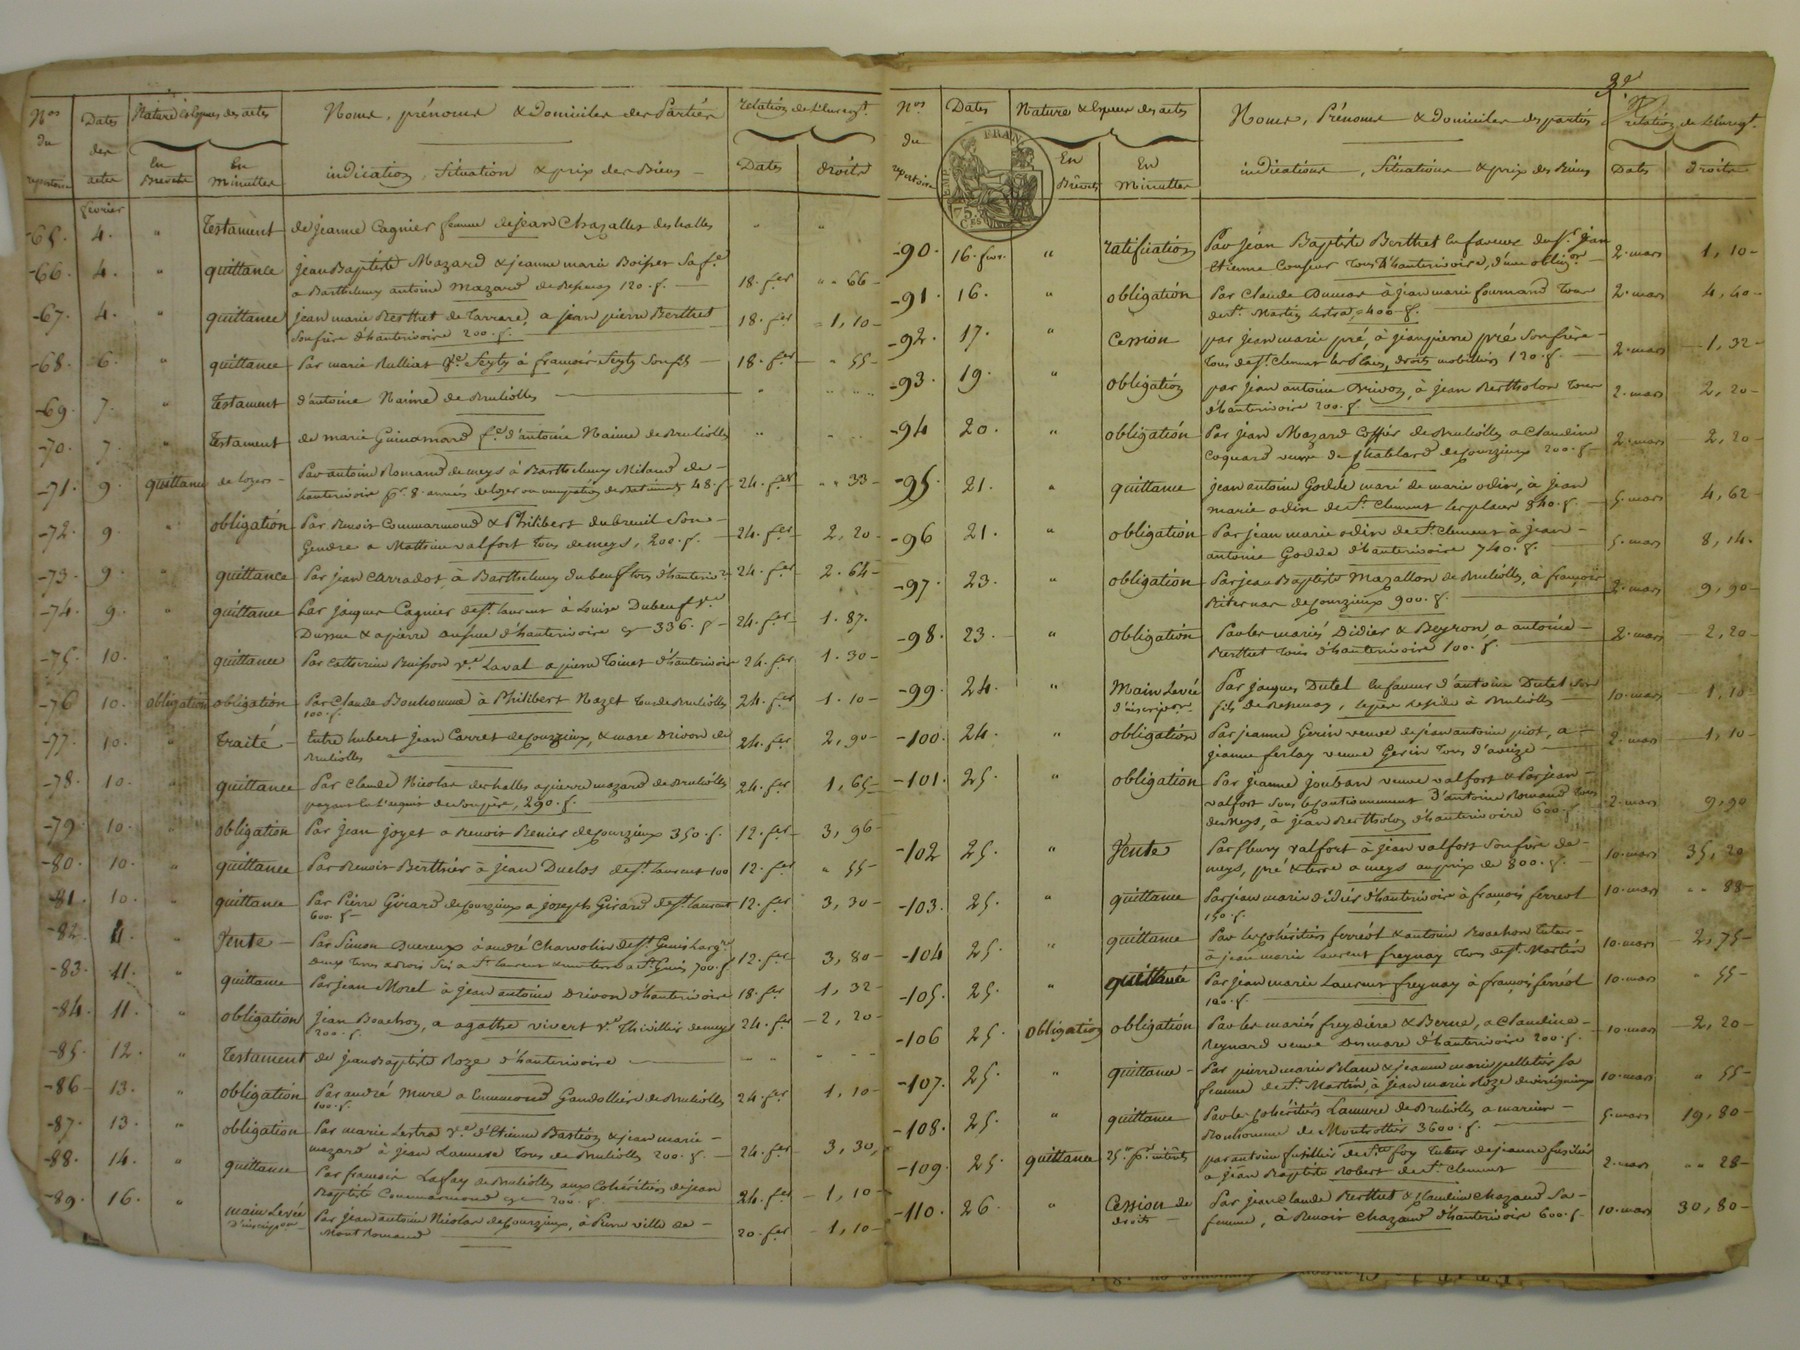 Nos du repertoire
Dates des actes
Nature & Espèces des actes
En Brevets
En Minuttes
Noms, prénoms & Domiciles des Parties
indication, Situation & prix des Biens
relation de l'Enregt.
Dates
droits
fevrier
-65. 4. " Testament de jeanne Cagnier femme de jean Chazalles des halles " "
-66. 4. " quittance jean Baptiste Mazard & jeanne marie Boisser Sa fe.
a Barthelemy antoine Mazard de 120. f. 18. fer " 66-
-67. 4. " quittance jean marie Berthet de Tarrare, a jean pierre Berthet
Son frère d'hauterivoire 200. f. 18. fer 1, 10-
-68. 6. " quittance Par marie Rulliat Ve. à françois Son fils 18. fer " 55-
-69. 7. " Testament d'antoine Naime de Brulioles "
-70. 7. " Testament de marie Guinamard fe. d'antoine Naime de Brulioles "
-71. 9. quittance de loyers Par antoine Romand de meys à Barthelemy Milaud de
hauterivoire pr. 8. années de loyer 48. f. 24. fer " 33-
-72. 9. " obligation Par Benoit Commarmond & Philibert dubreuil Son
Gendre a Mathieu valfort tous de meys, 200. f. 24. fer 2, 20-
-73. 9. " quittance Par jean Carradot, à Barthelemy dubeuf tous d'hauterivre. 24. fer 2. 64-
-74. 9. " quittance Par jacques Cagnier de St. Laurent à Louise Dubeuf Ve.
& a pierre d'hauterivoire 336. f. 24. fer 1. 87.
-75. 10. " quittance Par Catherine Buisson Ve. Laval a pierre Toinet d'hauterivoire 24. fer 1. 30-
-76 10. obligation obligation Par Claude Bonhomme à Philibert Nazet tous de Brulioles
100. f. 24. fer 1. 10-
-77. 10. " Traité Entre hubert jean Carret de Courzieux, & marc Drivon de
Brulioles 24. fer 2, 90-
-78. 10. " quittance Par Claude Nicolas des halles a pierre mazard de Brulioles
payant de Son père, 290. f. 24. fer 1, 65-
-79. 10. " obligation Par jean joyet a Benoit Renier de Courzieux 350. f. 12. fer 3, 96-
-80. 10. " quittance Par Benoit Berthier à jean Duclos de St. Laurent 100 12. fer " 55-
-81. 10. " quittance Par Pierre Girard de Courzieux a joseph Girard de St. Laurent
600. f. 12. fer 3, 30-
-82. 11. " Vente Par Simon à andré Charvolin de St. Genis
deux terres a St. Laurent & une terre a St. Genis 700. f. 12. fer 3, 80-
-83. 11. " quittance Par jean Morel à jean antoine Drivon d'hauterivoire 18. fer 1, 32-
-84. 11. " obligation jean Boachon, a agathe vivert Ve. Thivillier de meys
200. f. 24. fer 2, 20-
-85. 12. " Testament de jean Baptiste Roze d'hauterivoire
-86- 13. " obligation Par andré Mure a Ennemond Gandolliere de Brulioles
100. f. 24. fer 1, 10-
-87. 13. " obligation Par marie Lestra Ve. d'Etienne Bastion & jean marie
mazard à jean Lamure tous de Brulioles 200. f. 24. fer 3, 30,
-88. 14. " quittance Par francois Lafay de Brulioles aux Cohéritiers de jean
Baptiste Commarmond 200. f. 24. fer 1, 10-
-89. 16. " main Levée d'inscripon. Par jean antoine Nicolas de Courzieux, à Pierre ville de
Mont Romand 20. fer 1, 10-
32
Nos du repertoire
Dates
Natures & Espèces des actes
En Brevets
En Minuttes
Noms, Prénoms & Domiciles des parties
indications, Situations & prix des Biens
relation de l'Enregt.
Dates
droits
TIMB FRAN
75. CES
-90. 16. fevr. " ratification Par jean Baptiste Berthet En faveur du Sr. jean
Etienne Couseur tous d'hauterivoire, d'une obligon. 2. mars 1, 10-
-91. 16. " obligation Par Claude Dumas à jean marie fournand tous
de St. Martin Lestra, 400. f. 2. mars 4, 40-
-92. 17. " Cession par jean marie pré, à jean pierre pré Son frère
tous de St. Clement les places, droits mobiliers 120. f. 2. mars 1, 32-
-93. 19. " obligation par jean antoine Drivon, à jean Bertholon tous
d'hauterivoire 200. f. 2. mars 2, 20-
-94 20. " obligation Par jean Mazard Coffier de Brulioles a Claudine
Coquard veuve de Chatelard de Courzieux 200. f. 2. mars 2, 20-
-95. 21. " quittance jean antoine Godde mari de marie odin, à jean
marie odin de St. Clement les places 840. f. 5. mars 4, 62-
-96 21. " obligation Par jean marie odin de St. Clement à jean
antoine Godde d'hauterivoire 740. f. 5. mars 8, 14.
-97. 23. " obligation Par jean Baptiste Mazallon de Brulioles, à françois
de Courzieux 900. f. 2. mars 9, 90-
-98. 23. " obligation Par les mariés Didier & Beyron a antoine
Berthet tous d'hauterivoire 100. f. 2. mars 2, 20-
-99. 24. " Main Levée d'inscripon. Par jacques Dutel En faveur d'antoine Dutel Son
fils de, le père reside à Brulioles 10. mars 1, 10
-100. 24. " obligation Par jeanne Gerin veuve de jean antoine piot, a
jeanne ferlay veuve Gerin tous d'aveize 2. mars 1, 10-
-101. 25. " obligation Par jeanne joubart veuve valfort & Par jean
valfort Sous le Cautionnement d'antoine Romand tous
de meys, à jean Bertholon d'hauterivoire 600. f. 2. mars 9, 90
-102 25. " Vente Par fleury valfort à jean valfort Son frère de
meys, pré & terre a meys au prix de 800. f. 10. mars 35, 20
-103. 25. " quittance Par jean marie didier d'hauterivoire à françois ferreol
150. f. 10. mars " 88-
-104 25. " quittance Par les Cohéritiers ferréol & antoine Boachon Tuteur
a jean marie Laurent freynay tous de St. Martin 10. mars 2, 75-
-105. 25. " quittance Par jean marie Laurent freynay à françois ferréol
100. f. 10. mars " 55-
-106 25. obligation obligation Par les mariés freydière & Berne, a Claudine
Reynard veuve d'hauterivoire 200. f. 10. mars 2, 20-
-107. 25. " quittance Par pierre marie Blanc & jeanne marie pelletier Sa
femme de St. Martin, à jean marie Roze 10. mars " 55-
-108. 25. " quittance Par les Cohéritiers Lamure de Brulioles a marie
Bonhomme de Montrottier 3600. f. 5. mars 19, 80-
-109. 25. quittance par antoine fusillier de Ste. foy Tuteur de jeanne fusilier
a jean Baptiste Robert de St. Clement 2. mars " 28-
-110. 26. " Cession de droits Par jean Claude Berthet & Claudine Chazaud Sa
femme, à Benoit Chazaud d'hauterivoire 600. f. 10. mars 30, 80-